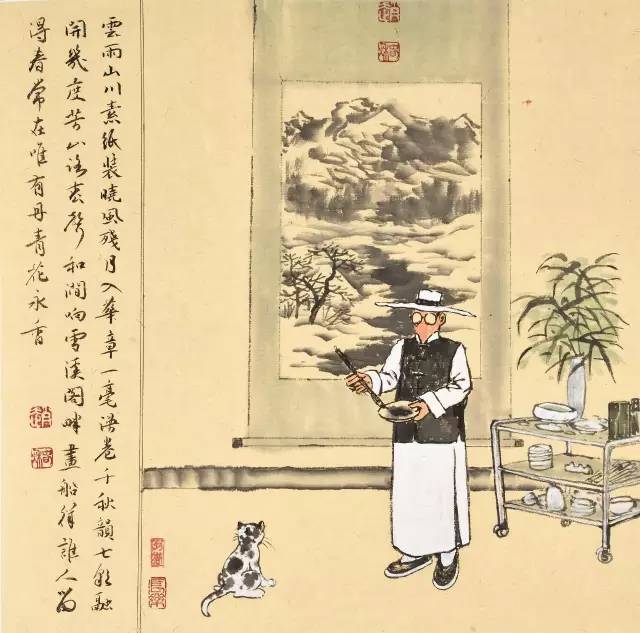 雲雨山川素紙裝曉風殘月入華章一毫漫卷千秋韻七彩融
開幾度芳山路松聲和澗响雪溪閣畔畫船徉誰人留
得春常在唯有丹青花永香